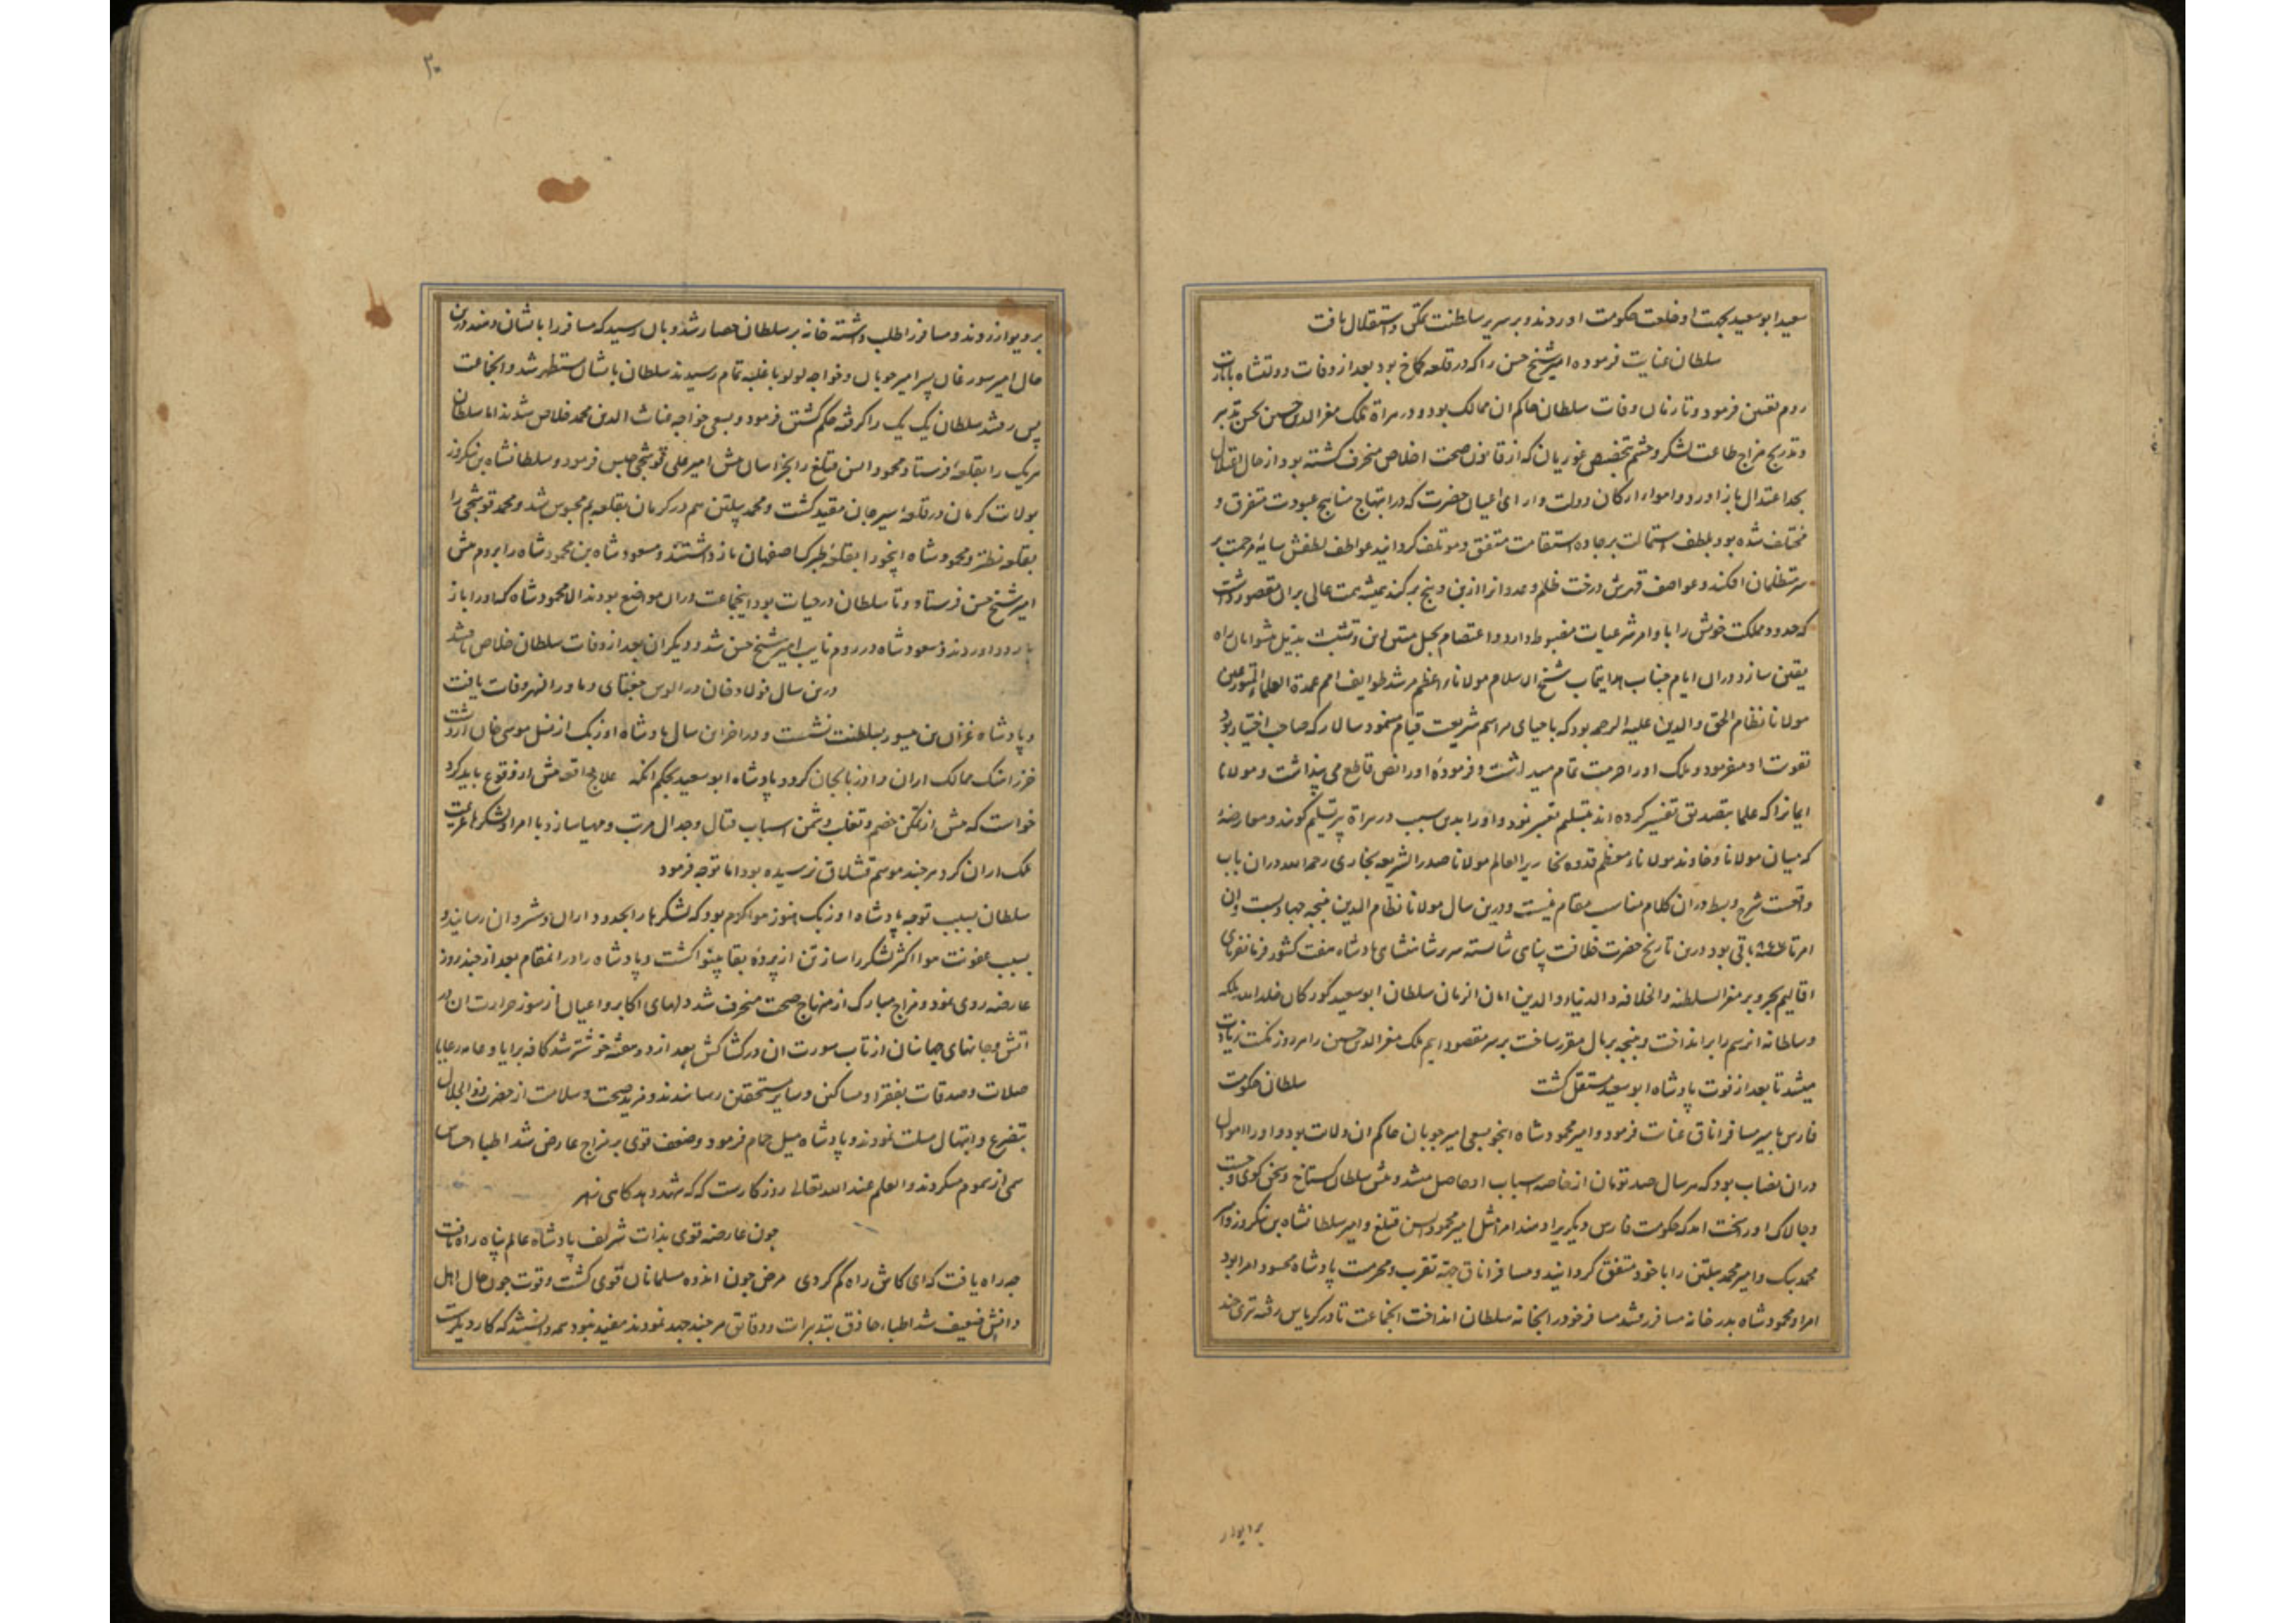 سعید ابوسعید بجهت او خلعت حکومت اوردند و بر سریر سلطنت تمکن و استقلال یافت
سلطان عنایت فرموده امیر شیخ حسن را که در قلعه کماخ بود بعد از وفات دولتشاه بایالت
روم تعیین فرمود و تا زمان وفات سلطان حاکم ان ممالک بود و در هراة ملک معزالدین حسین بحسن تدبیر
و تدریج مزاج طاعت لشکر و حشم بتخصیص غوریان که از قانون صحت اخلاص منحرف کشته بود از حال اختلال
بحد اعتدال باز اورد و اهواء ارکان دولت و ارای اعیان حضرت که در ابتهاج مناهج عبودیت متفرق و
مختلف شده بود بلطف استمالت بر جاده استقامت متفق و موتلف کردانید عواطف لطفش سایه مرحمت بر
سر متظلمان افکند و عواصف قهرش درخت ظلم و عدوانرا از بن و بیخ برکند همیشه همت عالی بران مقصور داشت
که حدود مملکت خویش را باوامر شرعیات مضبوط دارد و اعتصام بحبل متین دین و تشبث بذیل پیشوایان راه
یقین سازد دران ایام جناب هدایتماب شیخ الاسلام مولانا اعظم مرشد طوایف امم عمدة العلماء المتورعین
مولانا نظام الحق والدین علیه الرحمه بود که باحیای مراسم شریعت قیام مینمود سالار که صاحب اختیار بود
تقویت او میفرمود و ملک او را حرمت تمام میداشت و فرموده او را نص قاطع می پنداشت و مولانا
ایمانرا که علما بتصدیق تفسیر کرده اند بتسلیم تعبیر نمود و او را بدین سبب در هراة پیر تسلیم کویند و معارضه
که میان مولانا و خاوند مولاناء معظم قدوه نحاریر العالم مولانا صدر الشریعه بخاری رحمه الله دران باب
واقعست شرح و بسط دران کلام مناسب مقام نیست و درین سال مولانا نظام الدین پنجه جهاد بست وان
امر تا ۸٤۶ باقی بود درین تاریخ حضرت خلافت پناهی شایسته سریر شاهنشاهی پادشاه هفت کشور فرمانفرمای
اقالیم بحر و بر مغز السلطنه والخلافه والدنیا والدین امان الزمان سلطان ابوسعید کورکان خلد الله ملکه
وسلطانه انرسم را برانداخت و پنجه بر بال مقرر ساخت بر سر مقصود ایم ملک معزالدین حسین را هر روز مکنت زیادت
میشد تا بعد از فوت پادشاه ابوسعید مستقل کشت سلطان حکومت
فارس بامیر مسافر ایناق عنایت فرمود و امیر محمود شاه اینجو بسعی امیر جوبان حاکم ان ولایت بود و او را اموال
دران نصاب بود که هر سال صد تومان از خاصه اسباب او حاصل میشد و پیش سلطان کستاخ و سخن کوی و چست
و چالاک او را سخت امد که حکومت فارس دیکری را دهند امرا مثل امیر محمود ایسن قتلغ و امیر سلطانشاه بن نیکروز و امیر
محمد بیک و امیر محمد پیلتن را با خود متفق کردانید و مسافر ایناق جهة تقرب و محرمیت پادشاه محسود امرا بود
امرا و محمود شاه بدر خانه مسافر رفتند مسافر خود را بخانه سلطان انداخت انجماعت تا در کریاس رفته تیری چند
بر دیوار
۳۰
بر دیوار زدند و مسافر را طلب داشته خانه بر سلطان حصار شد و بان رسید که مسافر را بایشان دهند درین
حال امیر سورغان پسر امیر جوبان و خواجه لولو با غلبه تمام رسیدند سلطان بایشان مستظهر شد و انجماعت
پس رفتند سلطان یک یک را کرفته حکم کشتن فرمود و بسعی خواجه غیاث الدین محمد خلاص شدند اما سلطان
هریک را بقلعه فرستاد محمود ایسن قتلغ را بخراسان پیش امیر علی قوشجی حبس فرمود و سلطانشاه بن نیکروز
بولایت کرمان در قلعه سیرجان مقید کشت و محمد پیلتن هم در کرمان بقلعه بم محبوس شد و محمد قوشجی را
بقلعه نطنز و محمود شاه اینجو را بقلعه طبرک اصفهان باز داشتند و مسعود شاه بن محمود شاه را بروم پیش
امیر شیخ حسن فرستاد و تا سلطان در حیات بود اینجماعت دران مواضع بودند الا محمود شاه که او را باز
باردو اوردند و مسعود شاه در روم نایب امیر شیخ حسن شد و دیکران بعد از وفات سلطان خلاص یافتند
درین سال فولاد خان در الوس جغتای و ماوراالنهر وفات یافت
و پادشاه غزان بن میسور بسلطنت نشست و در اخر این سال پادشاه اوزبک از نسل موسی خان از دشت
خزر اهنک ممالک اران و اذربایجان کرد و پادشاه ابوسعید بحکم انکه علاج واقعه پیش از وقوع باید کرد
خواست که پیش از تمکن خصم و تغلب دشمن اسباب قتال و جدال مرتب و مهیا سازد با امرا و لشکرها عزیمت
ملک اران کرد هر چند موسم قشلاق نرسیده بود اما توجه فرمود
سلطان بسبب توجه پادشاه اوزبک هنوز هوا کرم بود که لشکرها را بحدود اران و شروان رسانید و
بسبب عفونت هوا اکثر لشکر را ساز تن از پرده بقا بینوا کشت و پادشاه را در انمقام بعد از چند روز
عارضه روی نمود و مزاج مبارک از منهاج صحت منحرف شد دلهای اکابر و اعیان از سوز حرارت ان در
اتش و جانهای جهانیان از تاب سورت ان در کشاکش بعد از دو هفته خوشتر شد کافه برایا و عامه رعایا
صلات و صدقات بفقرا و مساکین و سایر مستحقین رسانیدند و مزید صحت و سلامت از حضرت ذوالجلال
بتضرع و ابتهال مسئلت نمودند و پادشاه میل حمام فرمود و ضعف قوی بر مزاج عارض شد اطبا احساس
سمی از سموم میکردند والعلم عند الله تعالی روزکارست که که شهد دهد کاهی زهر
جون عارضه قوی بذات شریف پادشاه عالم پناه راه یافت
جه راه یافت که ای کاش راه کم کردی مرض جون اندوه مسلمانان قوی کشت و قوت جون حال اهل
دانش ضعیف شد اطباء حاذق بتدبیرات و دقایق هر چند جهد نمودند مفید نبود همه دانستند که کار دیکرست